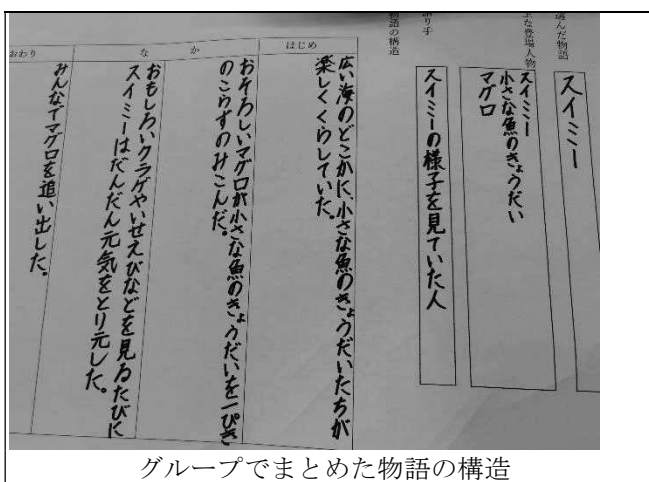 選んだ物語
スイミー
主な登場人物
スイミー
小さな魚のきょうだい
マグロ
語り手
スイミーの様子を見ていた人
物語の構造
はじめ
広い海のどこかに、小さな魚のきょうだいたちが
楽しくくらしていた。
なか
おそろしいマグロが小さな魚のきょうだいを一ぴき
のこらずのみこんだ。
おもしろいクラゲやいせえびなどを見るたびに
スイミーはだんだん元気をとり元した。
おわり
みんなでマグロを追い出した。
グループでまとめた物語の構造